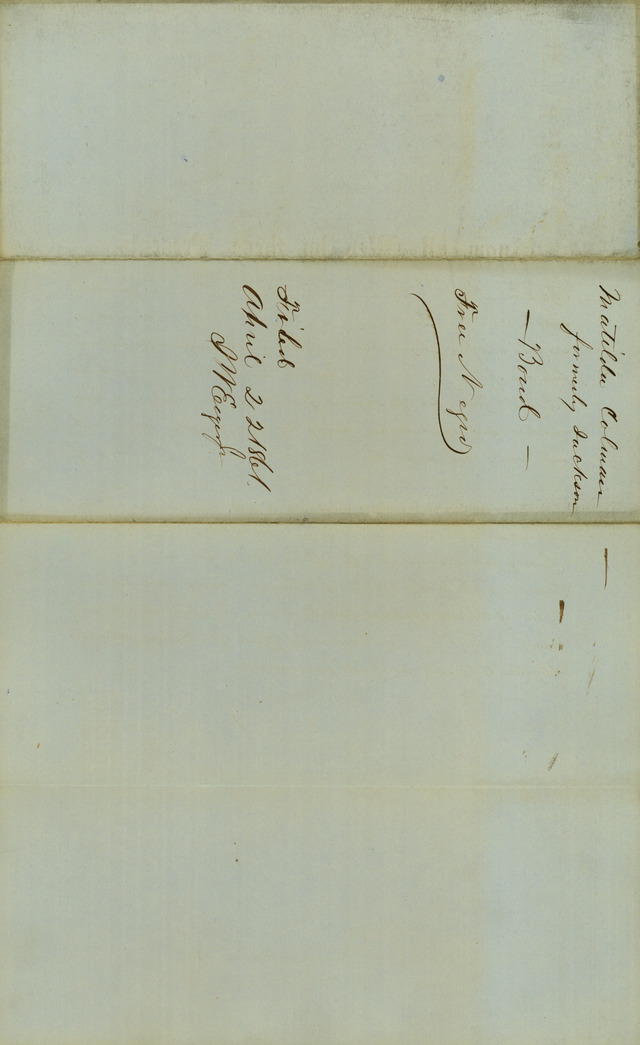 Matilda Colman
formerly Jackson
— Bond —
Free Negro
Filed
April 22 1861.